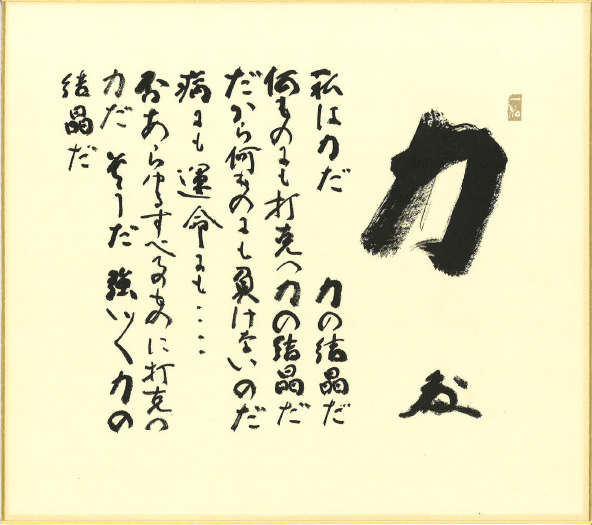 力
私は力だ 力の結晶だ
何ものにも打克つ力の結晶だ
だから何ものにも負けないのだ
病にも運命にも‥‥
否あらゆるすべてのものに打克つ
力だ そうだ 強い〱力の
結晶だ